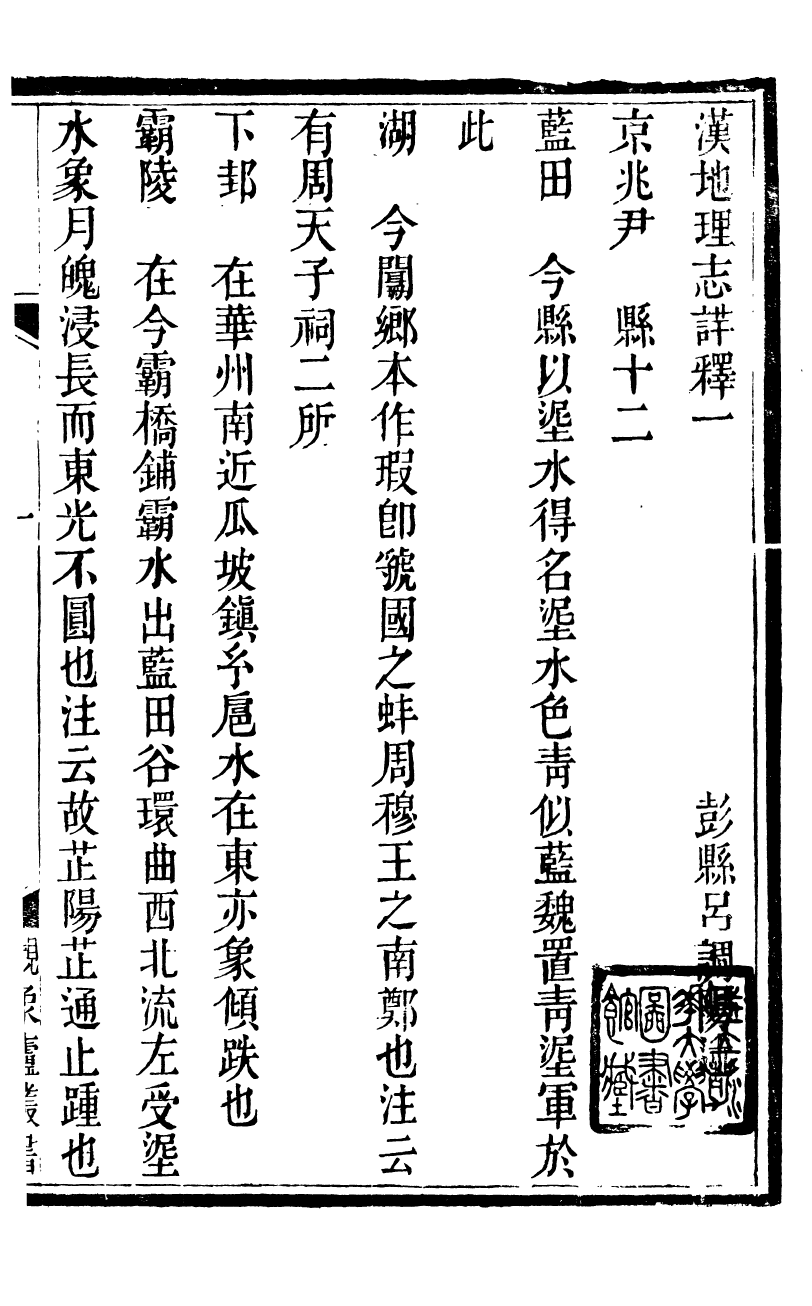 漢地理志詳釋一
彭縣呂調陽
京兆尹　縣十二
藍田　今縣以埿水得名埿水色靑似藍魏置靑埿軍於
此
湖　今閿鄉本作瑕卽虢國之蚌周穆王之南鄭也注云
有周天子祠二所
下邽　在華州南近瓜坡鎭兮扈水在東亦象傾跌也
霸陵　在今霸橋鋪霸水出藍田谷環曲西北流左受埿
水象月魄浸長而東光不圓也注云故芷陽芷通止踵也
一
觀象廬叢書